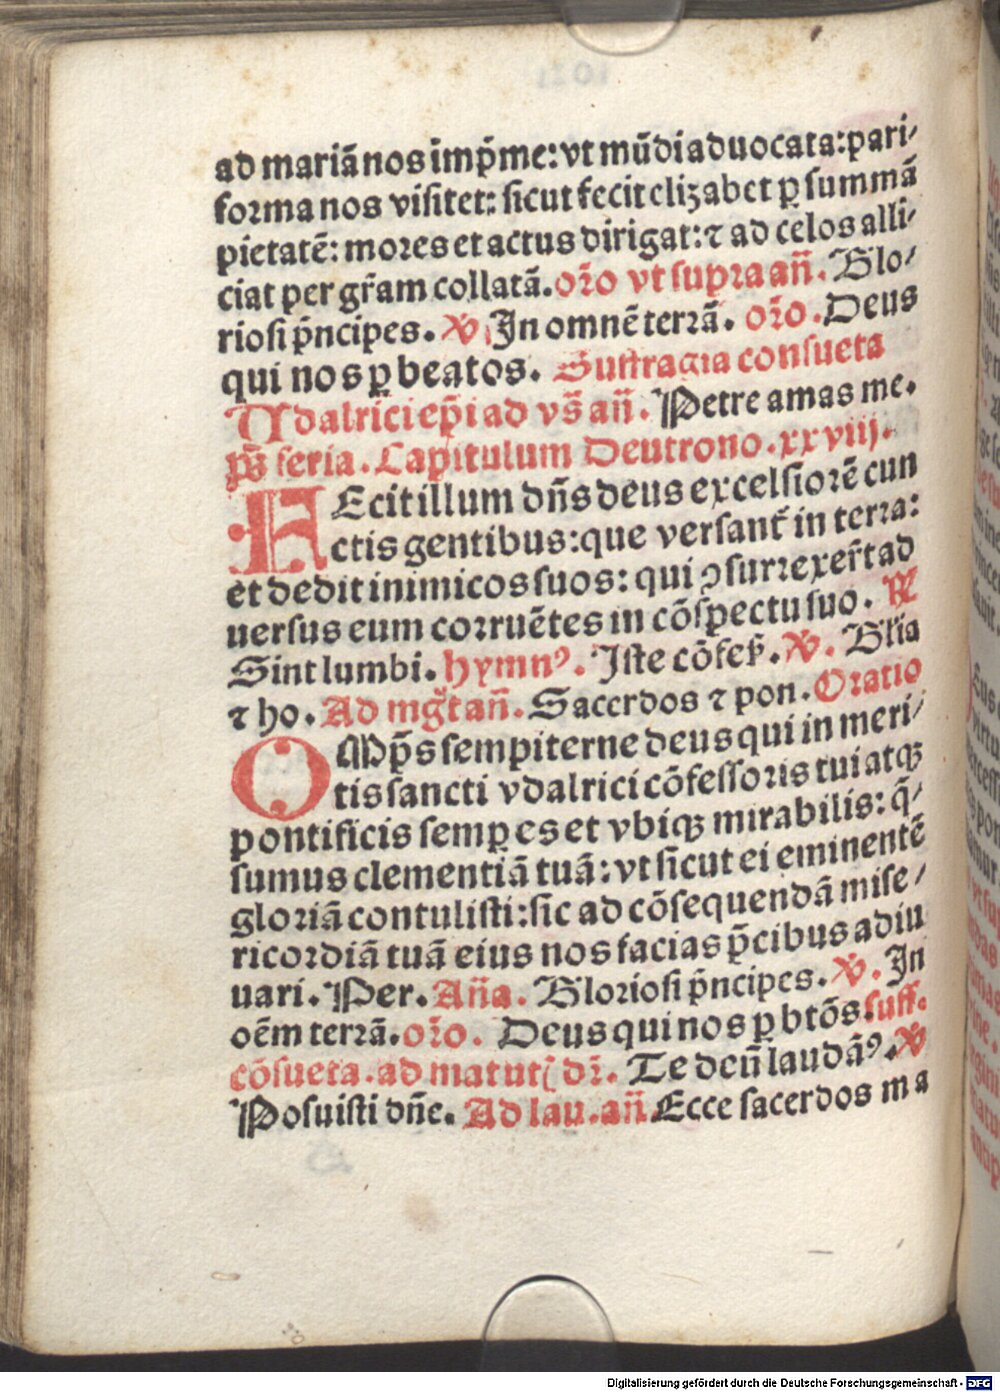 ad mariā nos imp̄me: vt mūdi aduocata: pari⸗
forma nos visitet: sicut fecit elizabet ꝑ summā
pietatē: mores et actus dirigat: ⁊ ad celos alli⸗
ciat per gr̄am collatā. or̄o vt supra an̄. Glo⸗
riosi p̄ncipes. ℣. In omnē terrā. or̄o. Deus
qui nos ꝑ beatos. Suffragia consueta
Udalrici ep̄i ad vs̄ an̄. Petre amas me.
feria. Capitulum Deutrono. xxviij.
FEcit illum dn̄s deus excelsiorē cun
ctis gentibus: que versant᷑ in terra:
et dedit inimicos suos: qui ↄsurrexer̄t ad
uersus eum corruētes in cōspectu suo. ℟
Sint lumbi. hymnꝰ. Iste cōfes̄. ℣. Glīa
⁊ ho. Ad mḡt an̄. Sacerdos ⁊ pon. Oratio
OMp̄s sempiterne deus qui in meri⸗
tis sancti vdalrici cōfessoris tui atqꝫ
pontificis semꝑ es et vbiqꝫ mirabilis: q̄⸗
sumus clementiā tuā: vt sicut ei eminentē
gloriā contulisti: sic ad cōsequendā mise⸗
ricordiā tuā eius nos facias p̄cibus adiu
uari. Per. An̄a. Gloriosi p̄ncipes. ℣. In
oēm terrā. or̄o. Deus qui nos ꝑ btōs. suff.
cōsueta. ad matut dī. Te deū laudāꝰ. ℣
Posuisti dn̄e. Ad lau. an̄. Ecce sacerdos ma
Digitalisierung gefördert durch die Deutsche Forschungsgemeinschaft - DFG